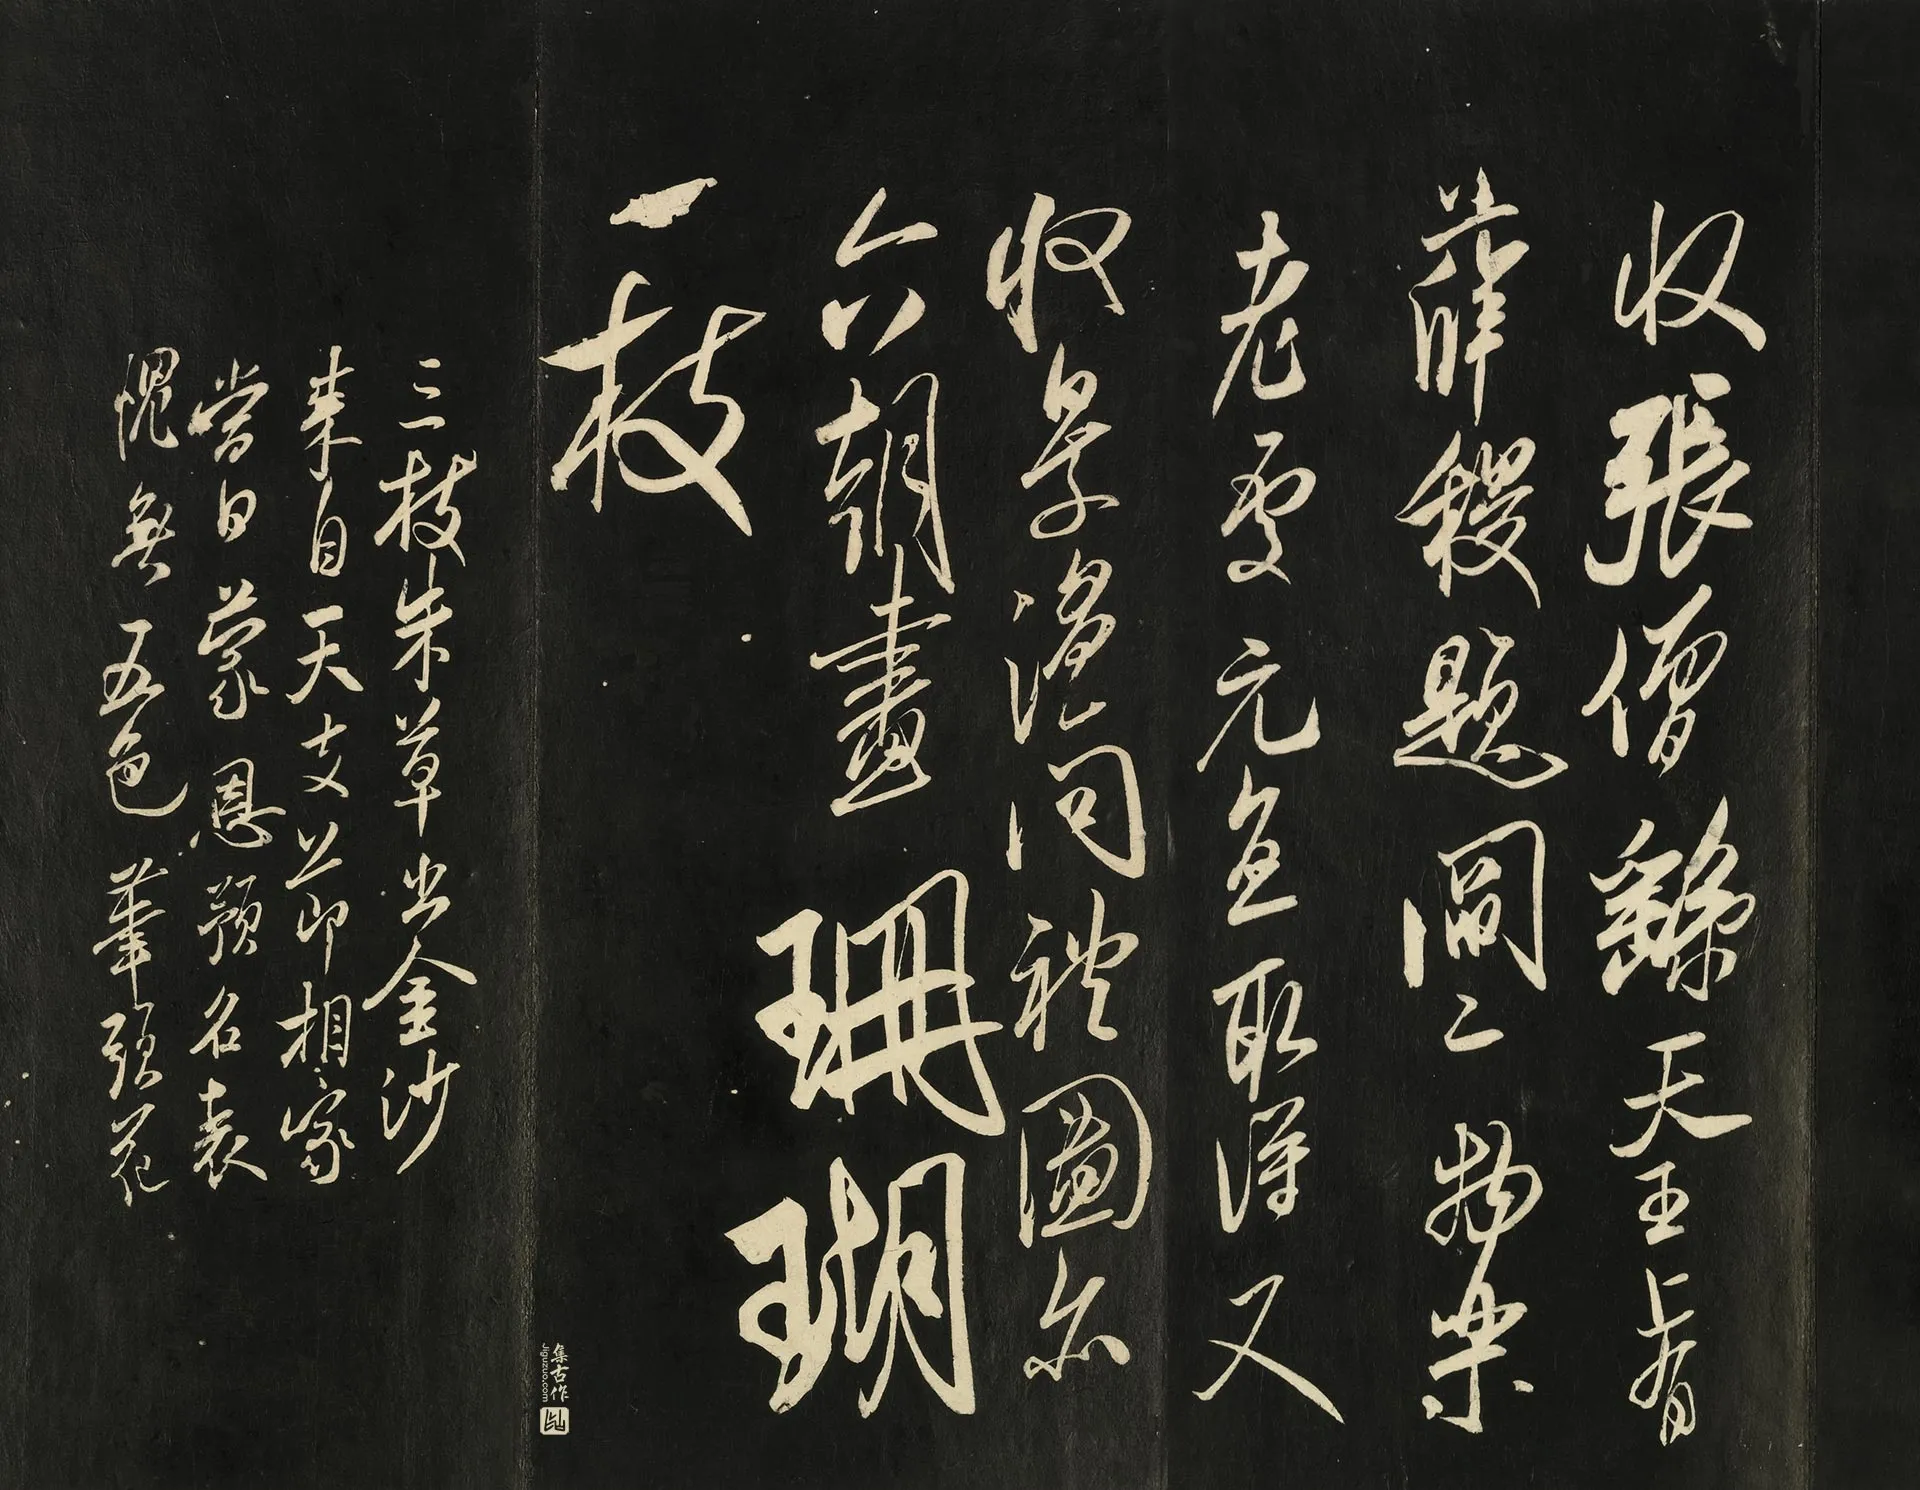 收張僧繇天王上有
薛稷題閻二物樂
老處元直取得又
收景溫問禮圖亦
六朝畫珊瑚
一枝
三枝朱草出金沙
來自天支節相家
當日蒙恩預名表
愧無五色筆頭花
集古作
Jiguzuo.com